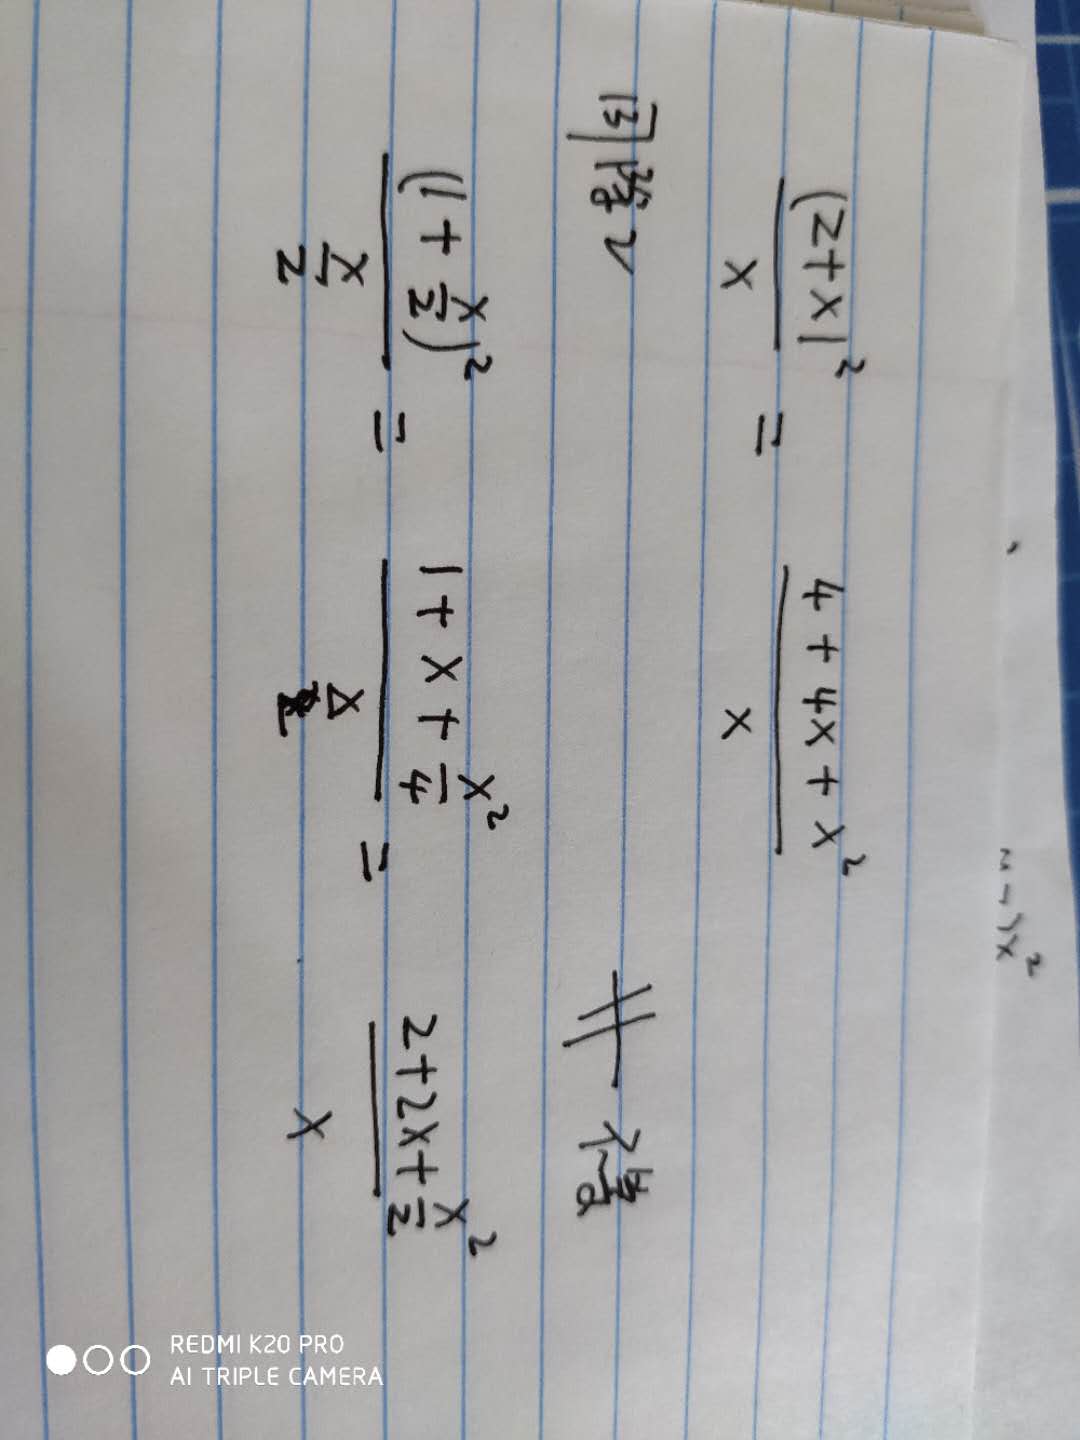 x²
(2+x)² / x = (4 + 4x + x²) / x
同除2
(1 + x/2)² / (x/2) = (1 + x + x²/4) / (x/2) = (2+2x+x²/2) / x
REDMI K20 PRO
AI TRIPLE CAMERA